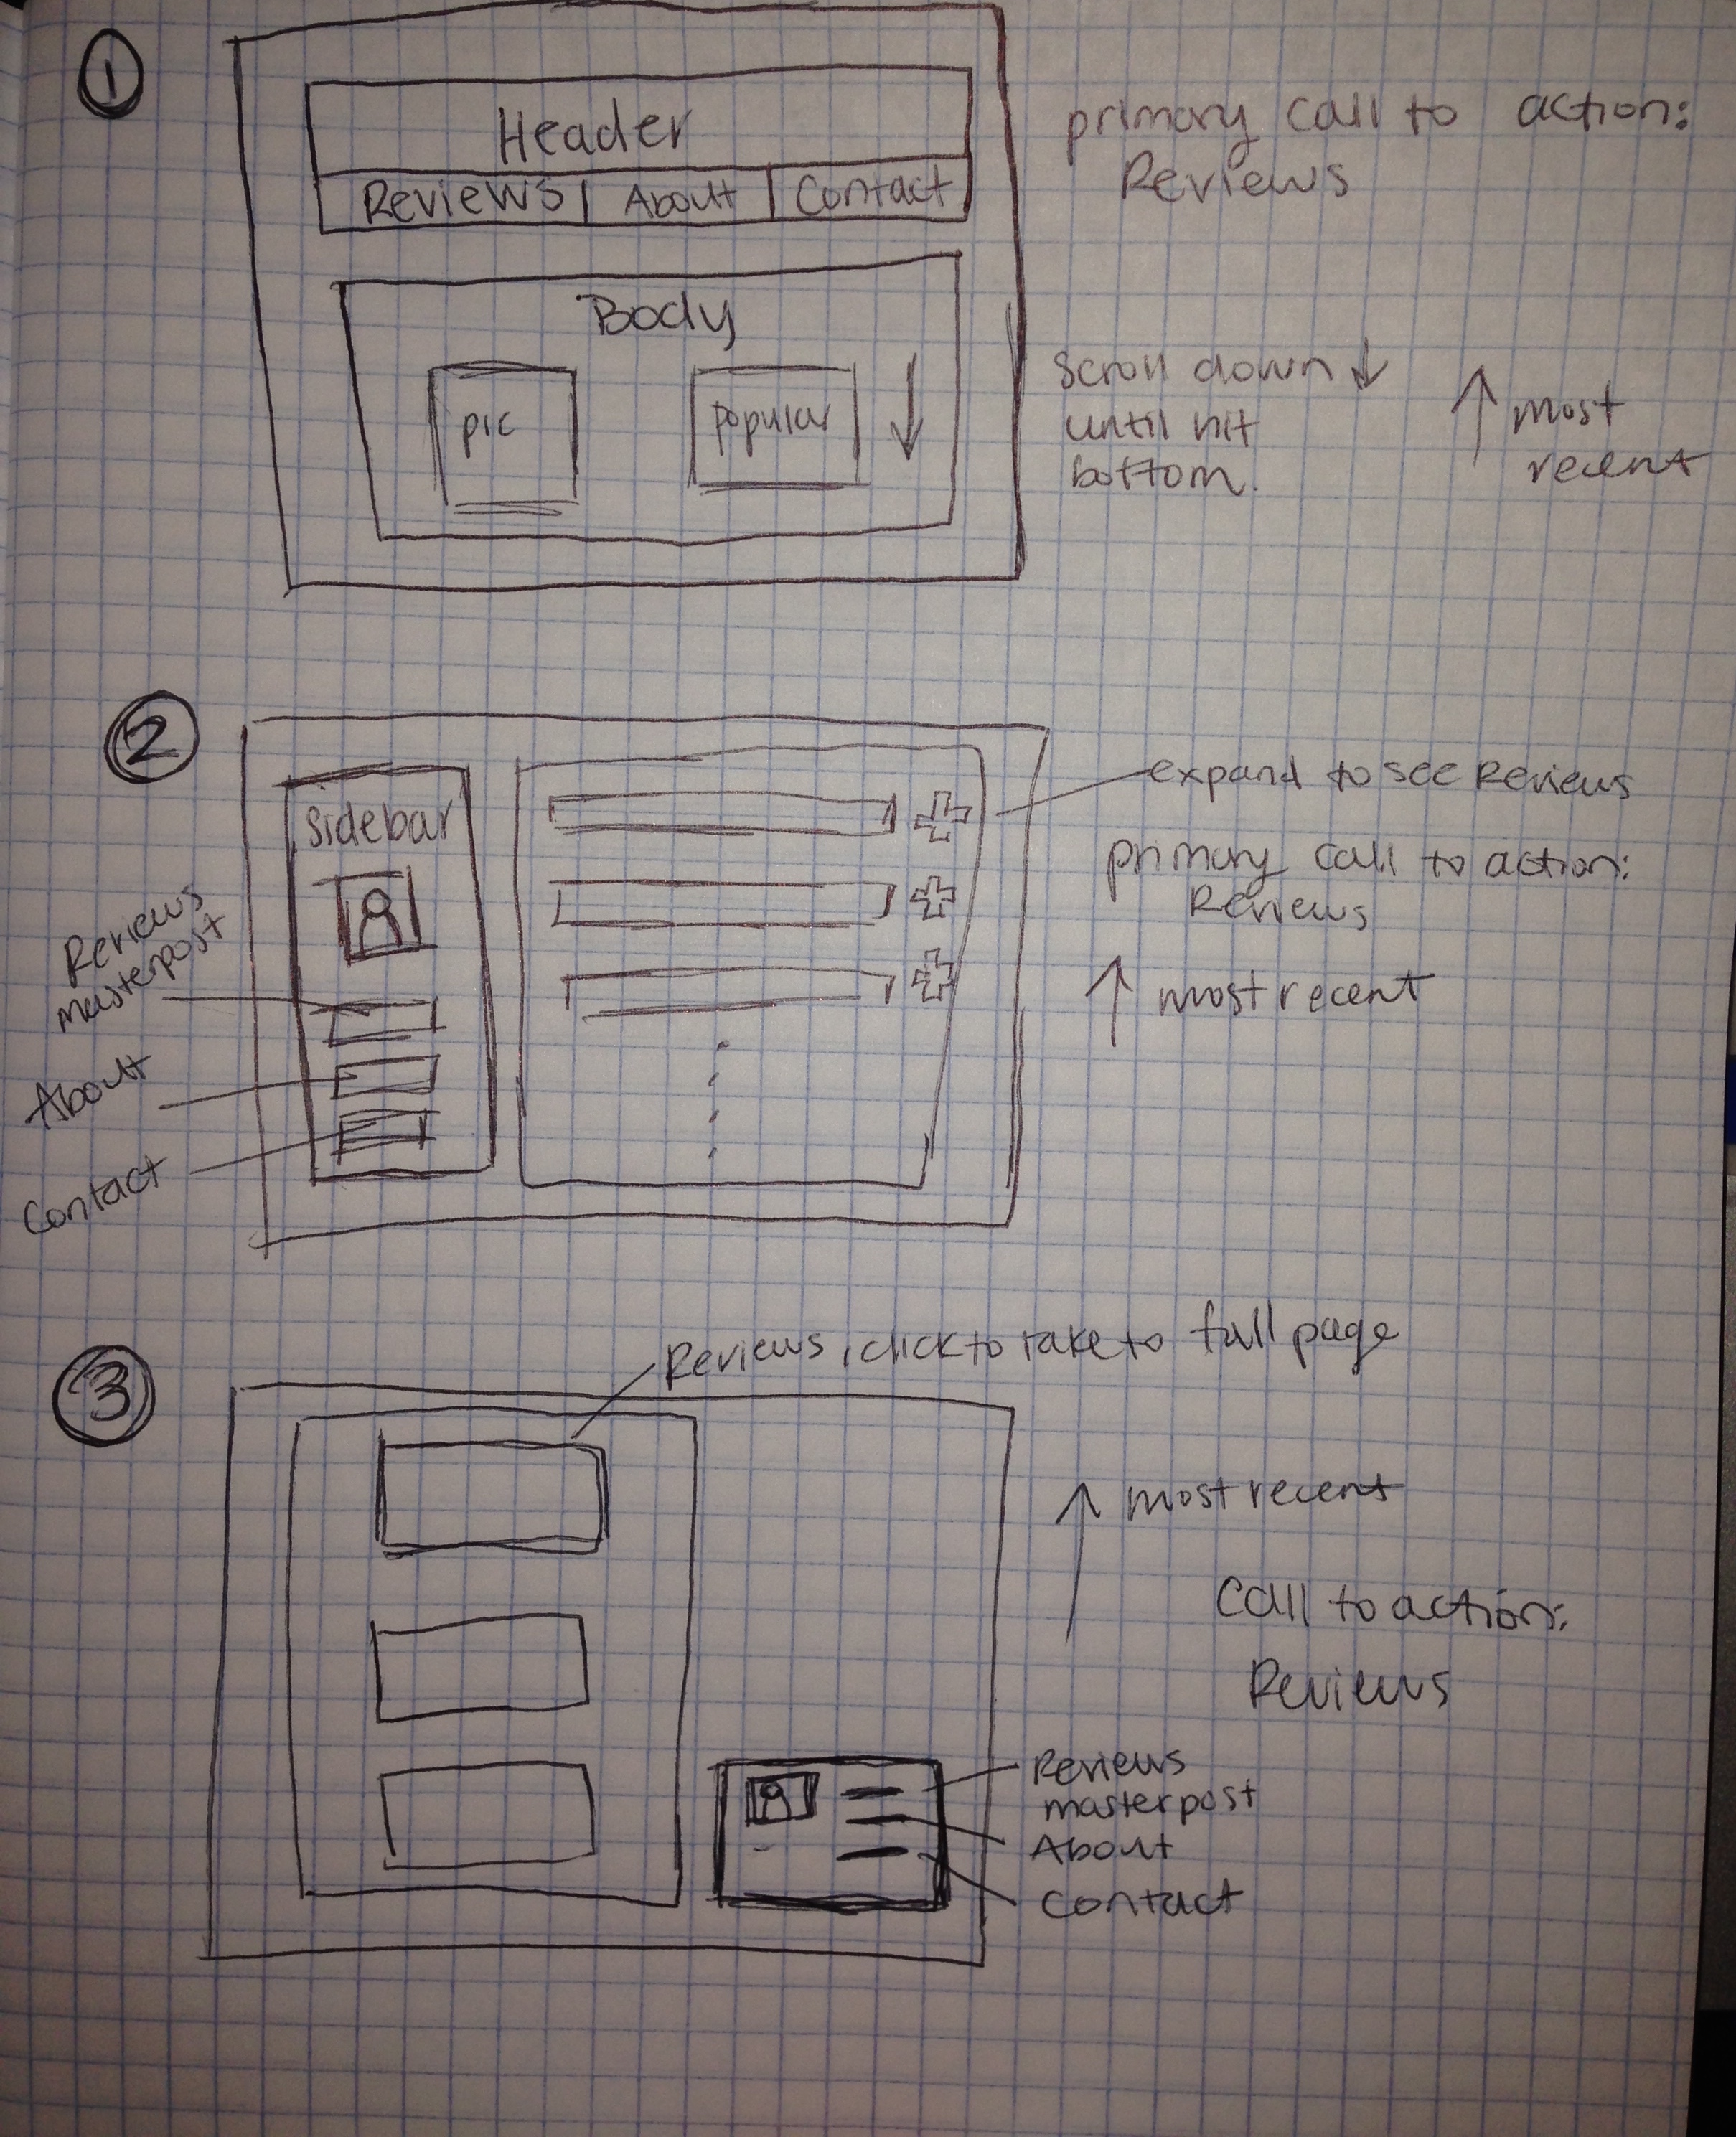 1
Header
Reviews | About | Contact
primary call to action:
Reviews
Body
pic
popular
scroll down ↓
until hit
bottom.
↑ most
recent
2
Sidebar
Reviews
masterpost
About
Contact
expand to see Reviews
primary call to action:
Reviews
↑ most recent
3
Reviews, click to take to full page
↑ most recent
Call to action:
Reviews
Reviews
masterpost
About
Contact